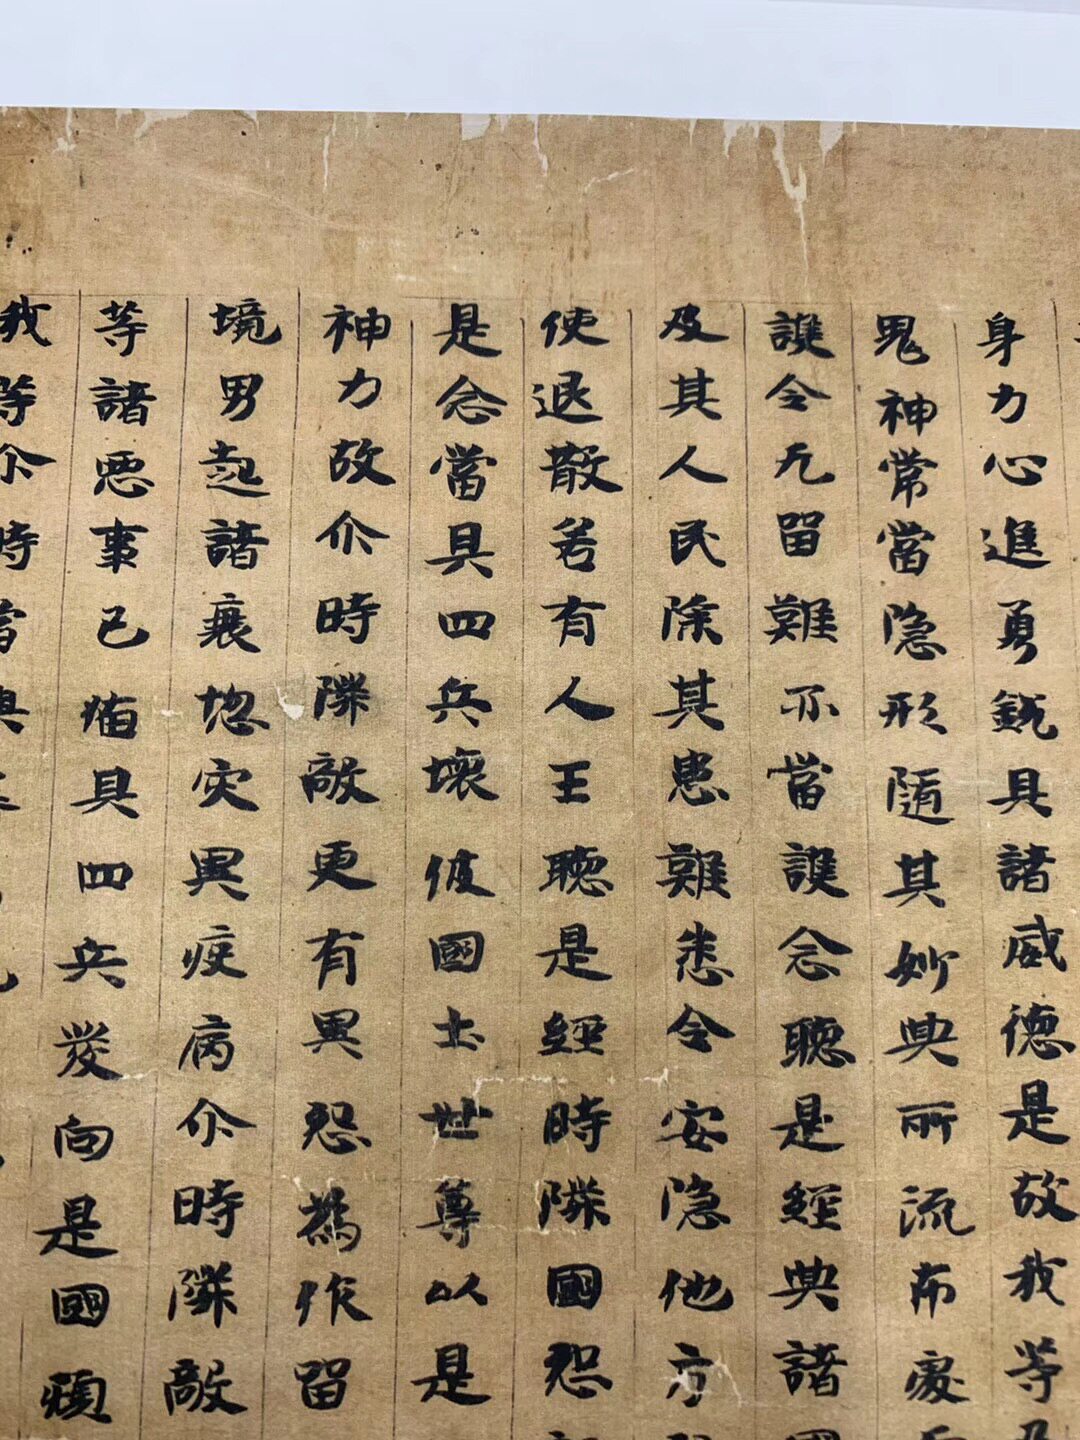 身力心進勇銳具諸威德是故我等
鬼神常當隱形隨其妙典所流布處
護令无留難亦當護念聽是經典諸
及其人民除其患難悉令安隱他方
使退散若有人王聽是經時隣國怨
是念當具四兵壞彼國土世尊以是
神力故尒時隣敵更有異怨為作留
境界起諸衰惱灾異疫病尒時隣敵
等諸惡事已俻具四兵發向是國規
我等尒時當與